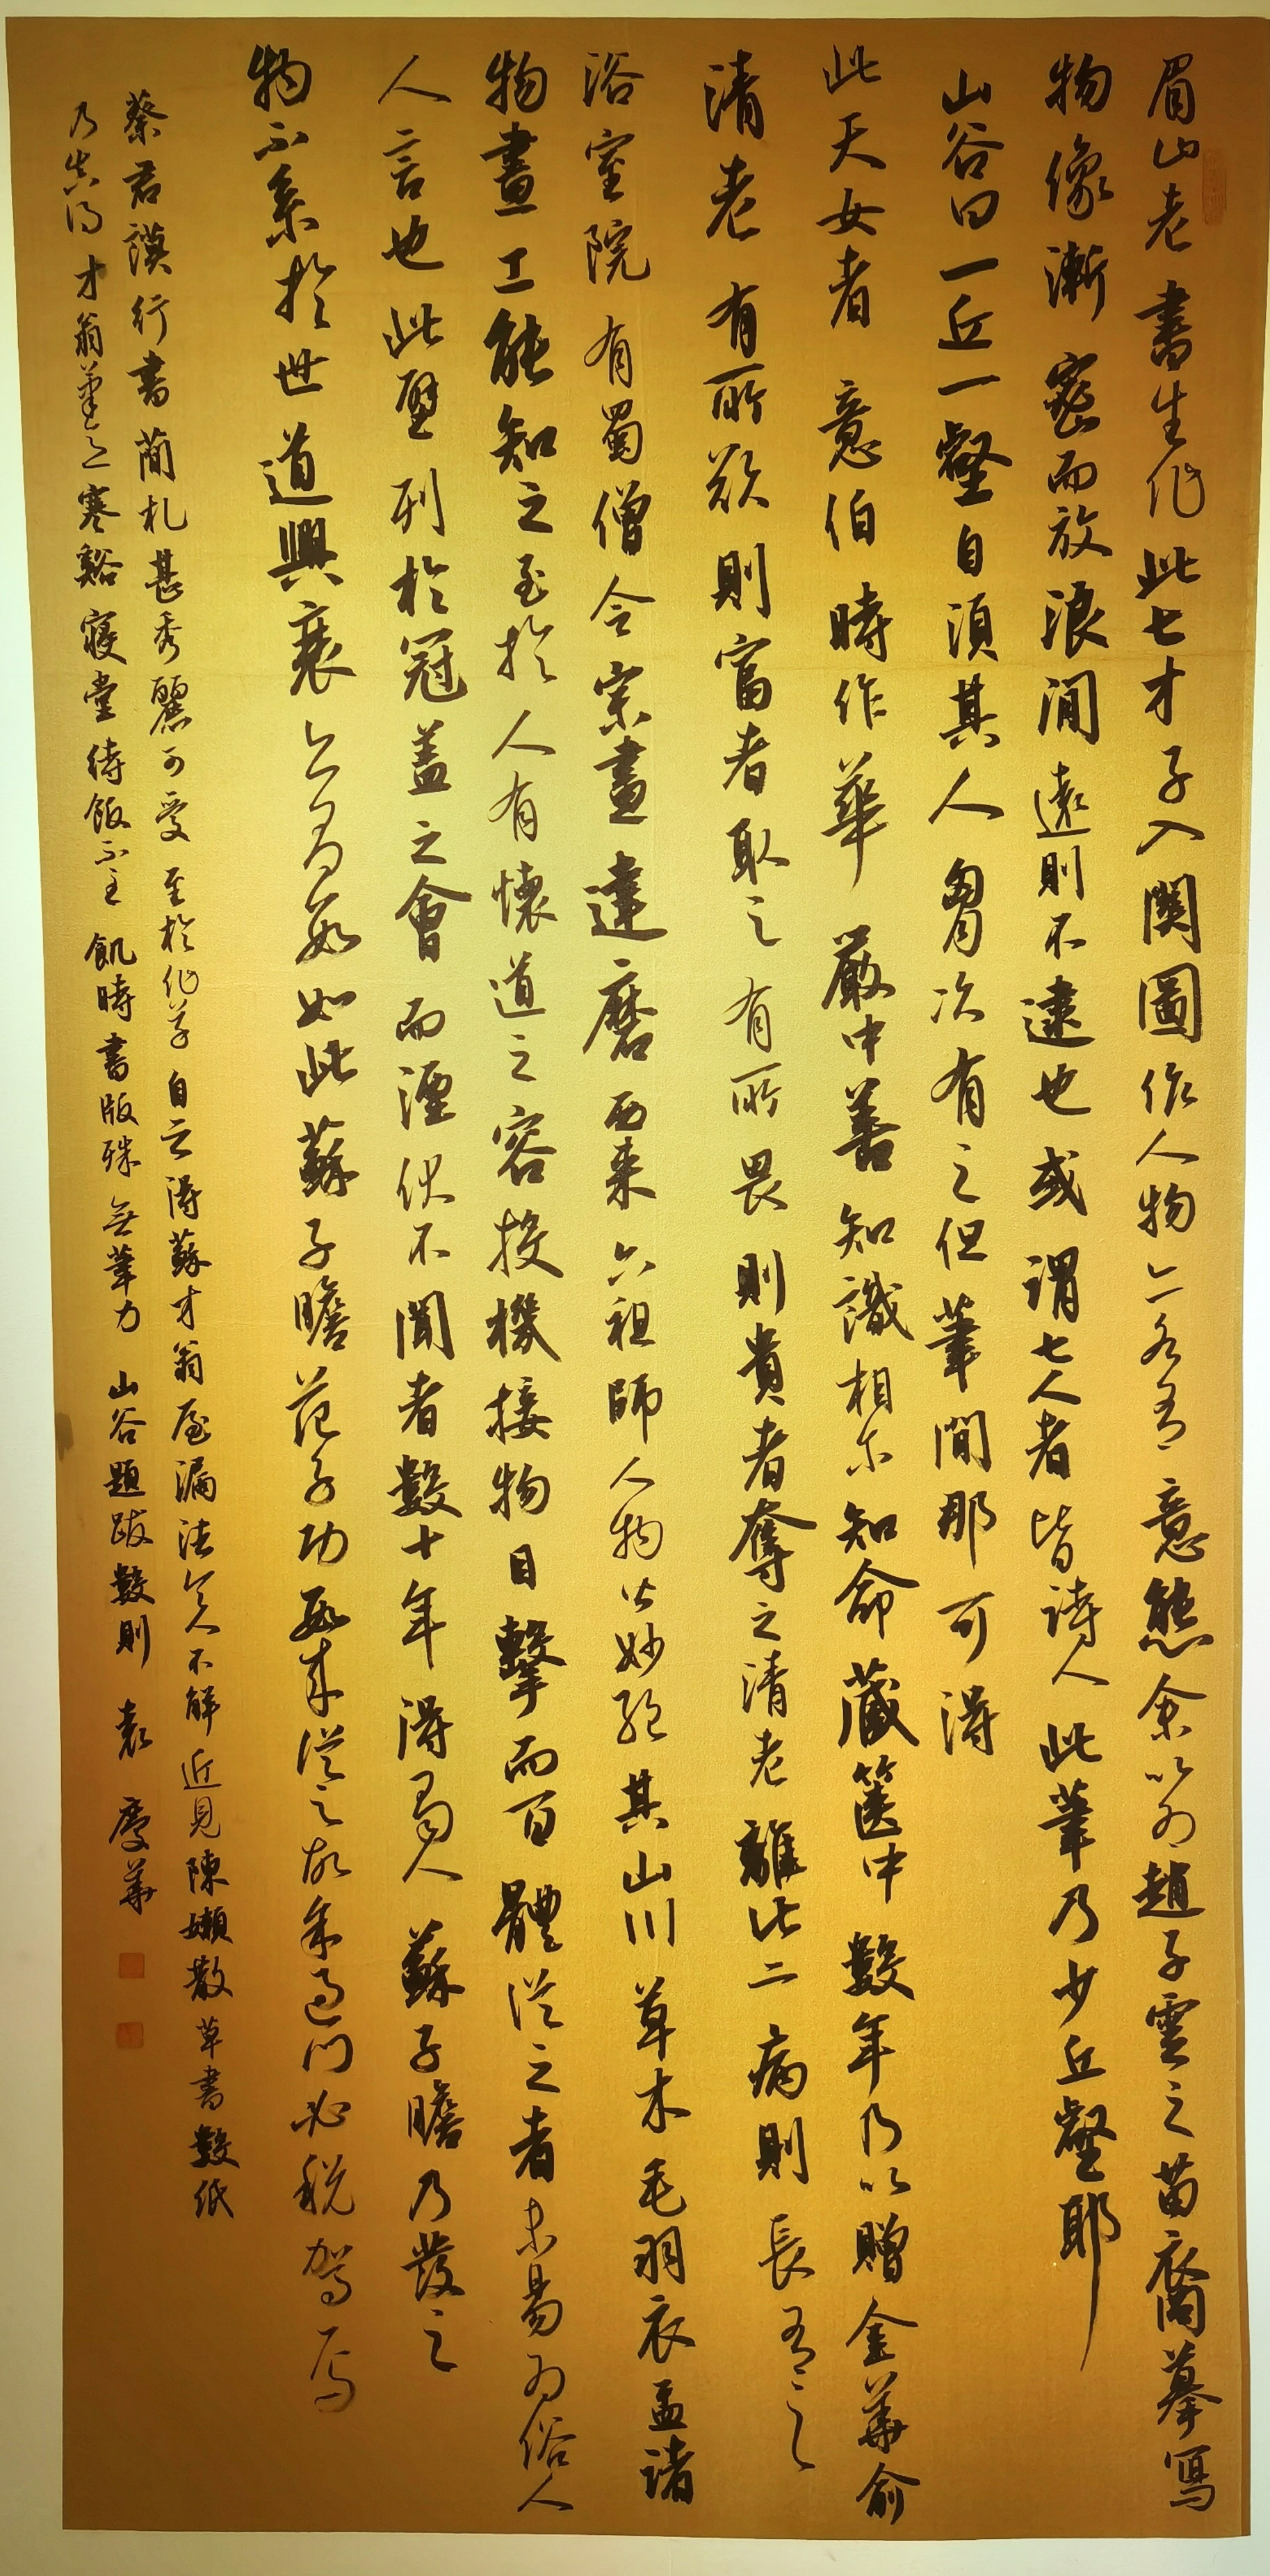 眉山老書生作此七才子入關圖作人物亦各有意態余以為趙子雲之苗裔摹寫
物像漸密而放浪閒遠則不逮也或謂七人者皆詩人此筆乃少丘壑耶
山谷曰一丘一壑自須其人胷次有之但筆間那可得
此天女者意伯時作華嚴中善知識相尒知命藏篋中數年乃以贈金華俞
清老有所欲則富者取之有所畏則貴者奪之清老離此二病則長有之
浴室院有蜀僧令宗畫達磨西來六祖師人物皆妙絕其山川草木毛羽衣盂諸
物畫工能知之至於人有懷道之容投機接物目擊而百體從之者未易為俗人
人言也此壁列於冠盖之會而湮伏不聞者數十年得蜀人蘇子瞻乃發之
物不系於世道興衰亦有數如此蘇子瞻范子功數來從之故余過門必稅駕焉
蔡君謨行書蕳札甚秀麗可愛至於作草自云得蘇才翁屋漏法令人不解近見陳嬾散草書數紙
乃真得才翁筆意寒谿寢堂待飯不至飢時書版殊無筆力 山谷題跋數則 袁慶華